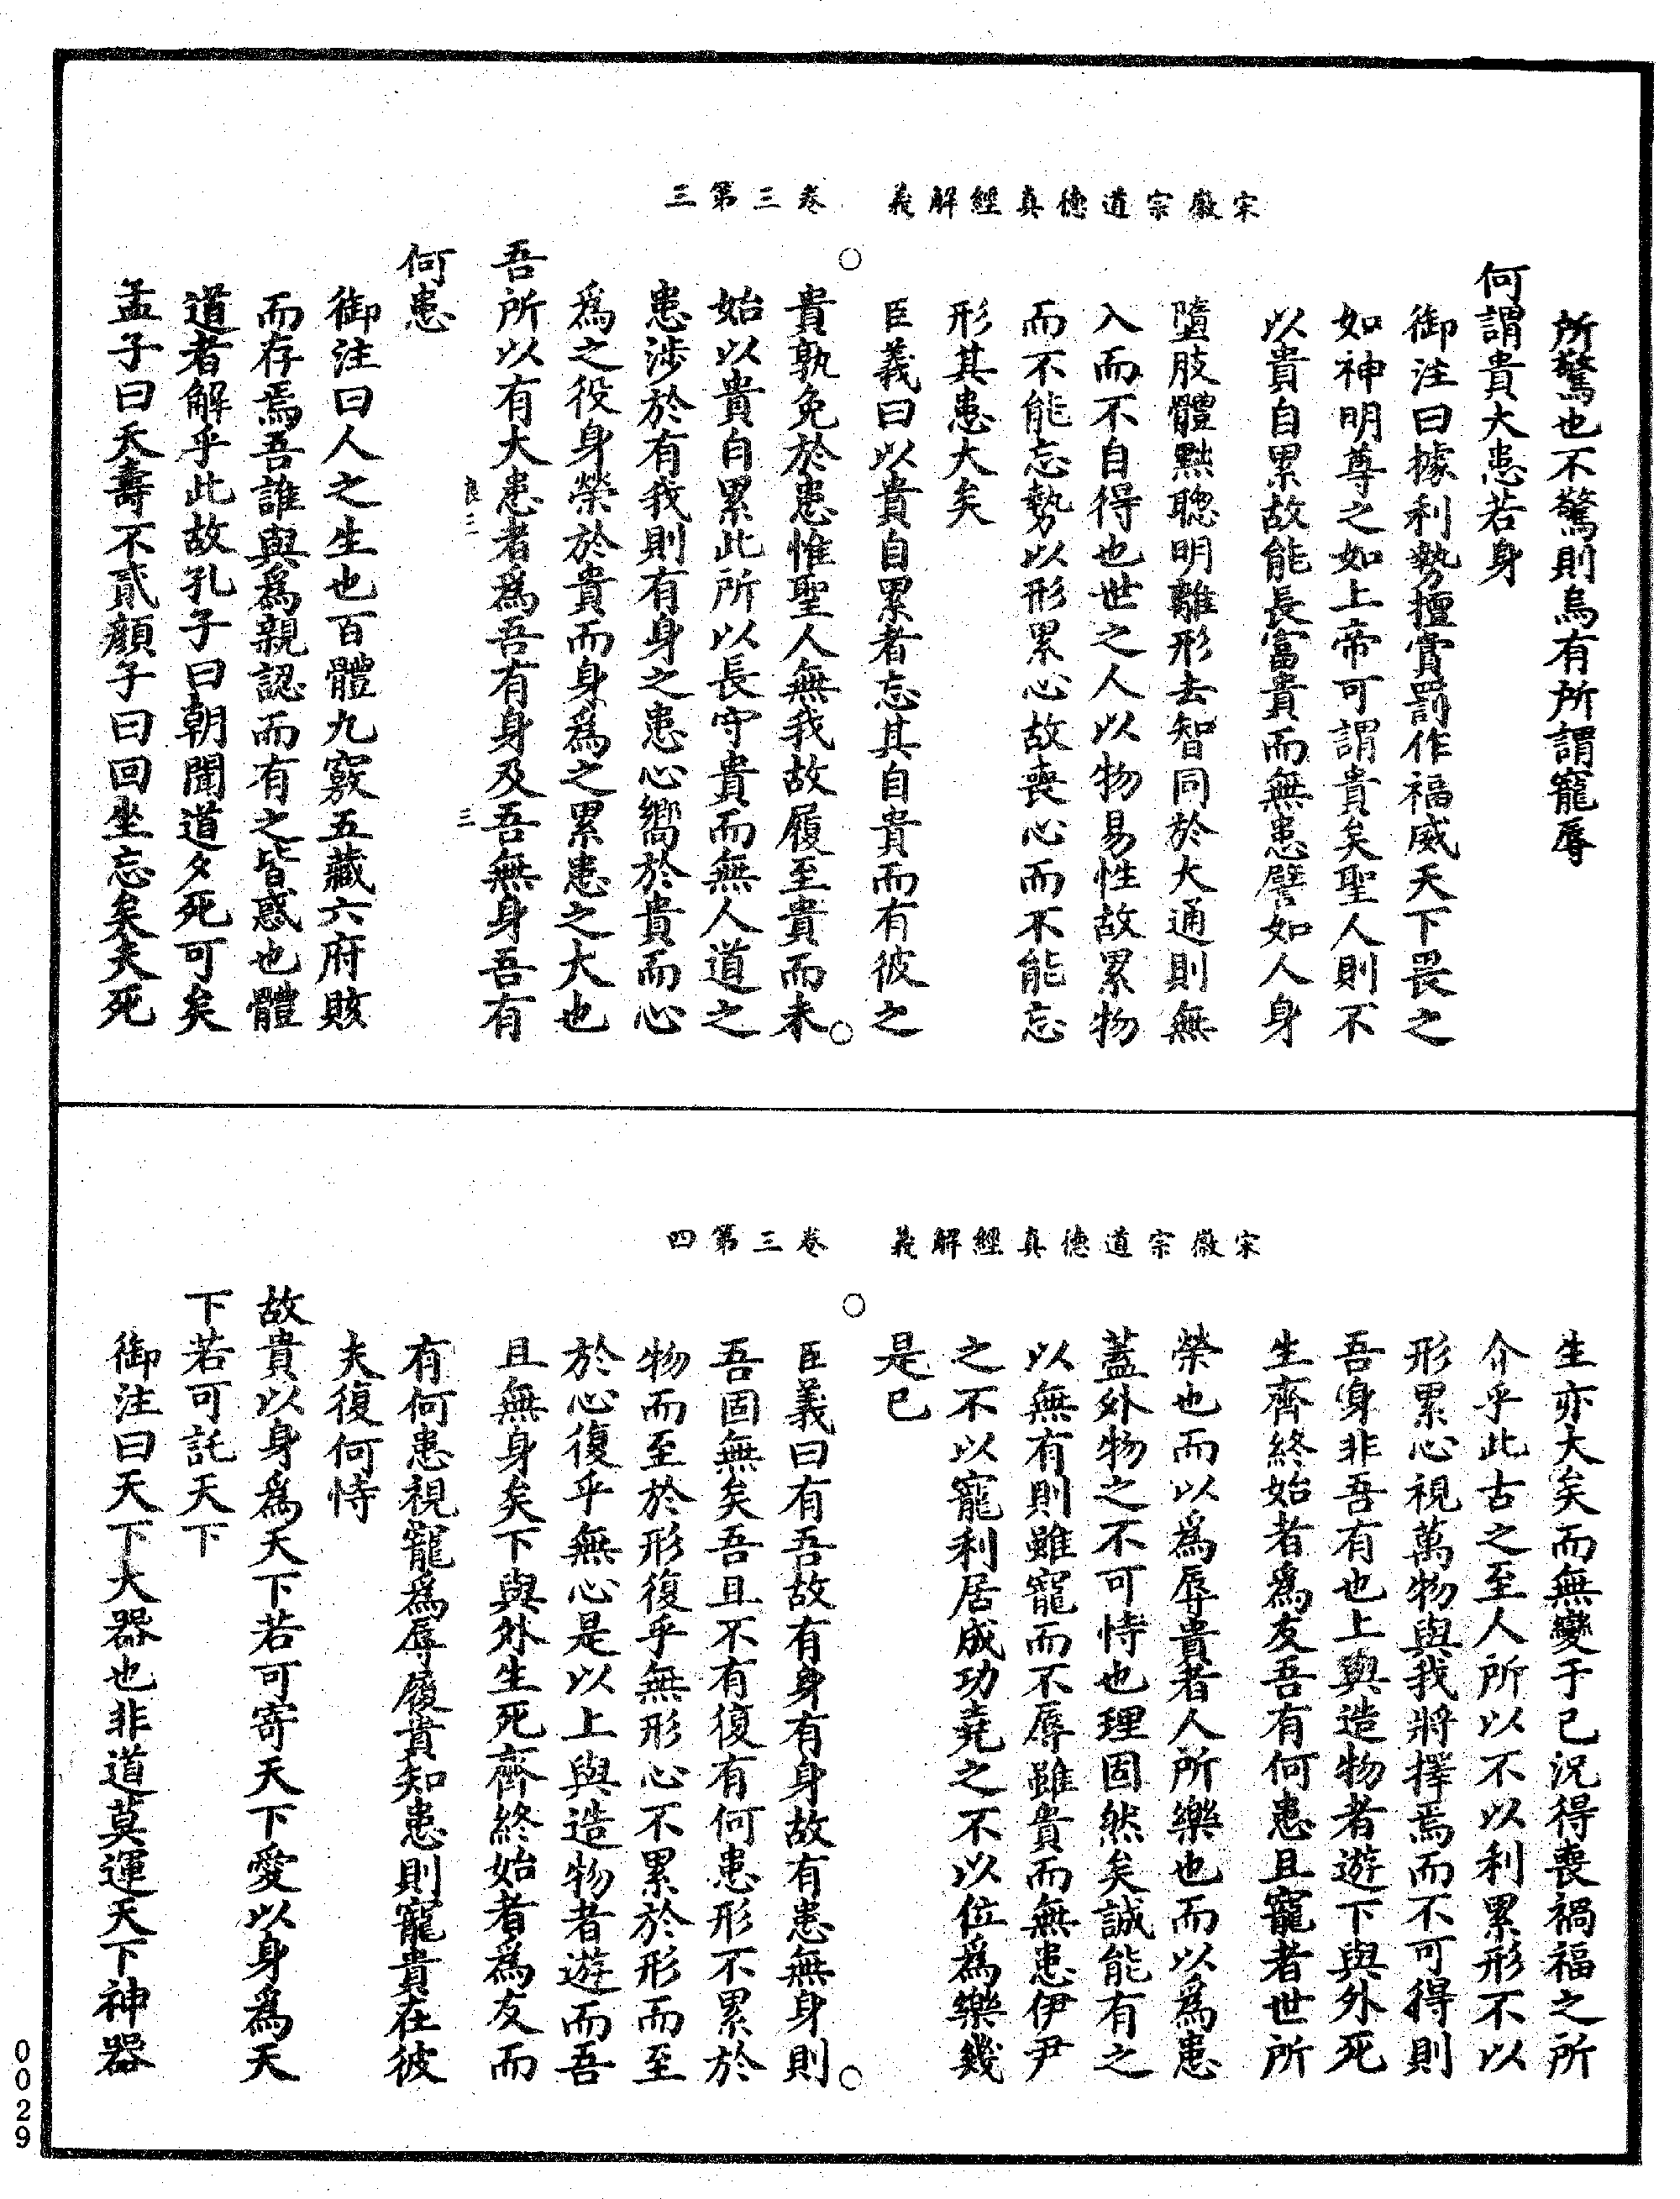 宋徽宗道德真經解義　卷三第三
所驚也不驚則烏有所謂寵辱
何謂貴大患若身
御注曰據利勢擅賞罰作福威天下畏之
如神明尊之如上帝可謂貴矣聖人則不
以貴自累故能長富貴而無患譬如人身
墮肢體黜聰明離形去智同於大通則無
入而不自得也世之人以物易性故累物
而不能忘勢以形累心故喪心而不能忘
形其患大矣
臣義曰以貴自累者忘其自貴而有彼之
貴孰免於患惟聖人無我故履至貴而未
始以貴自累此所以長守貴而無人道之
患涉於有我則有身之患心嚮於貴而心
為之役身榮於貴而身為之累患之大也
吾所以有大患者為吾有身及吾無身吾有
三
何患
御注曰人之生也百體九竅五藏六府賅
而存焉吾誰與為親認而有之皆惑也體
道者解乎此故孔子曰朝聞道夕死可矣
孟子曰夭壽不貳顏子曰回坐忘矣夫死
宋徽宗道德真經解義　卷三第四
生亦大矣而無變于己況得喪禍福之所
介乎此古之至人所以不以利累形不以
形累心視萬物與我將擇焉而不可得則
吾身非吾有也上與造物者遊下與外死
生齊終始者為友吾有何患且寵者世所
榮也而以為辱貴者人所樂也而以為患
蓋外物之不可恃也理固然矣誠能有之
以無有則雖寵而不辱雖貴而無患伊尹
之不以寵利居成功堯之不以位為樂幾
是已
臣義曰有吾故有身有身故有患無身則
吾固無矣吾且不有復有何患形不累於
物而至於形復乎無形心不累於形而至
於心復乎無心是以上與造物者遊而吾
且無身矣下與外生死齊終始者為友而
有何患視寵為辱履貴知患則寵貴在彼
夫復何恃
故貴以身為天下若可寄天下愛以身為天
下若可託天下
御注曰天下大器也非道莫運天下神器
0029